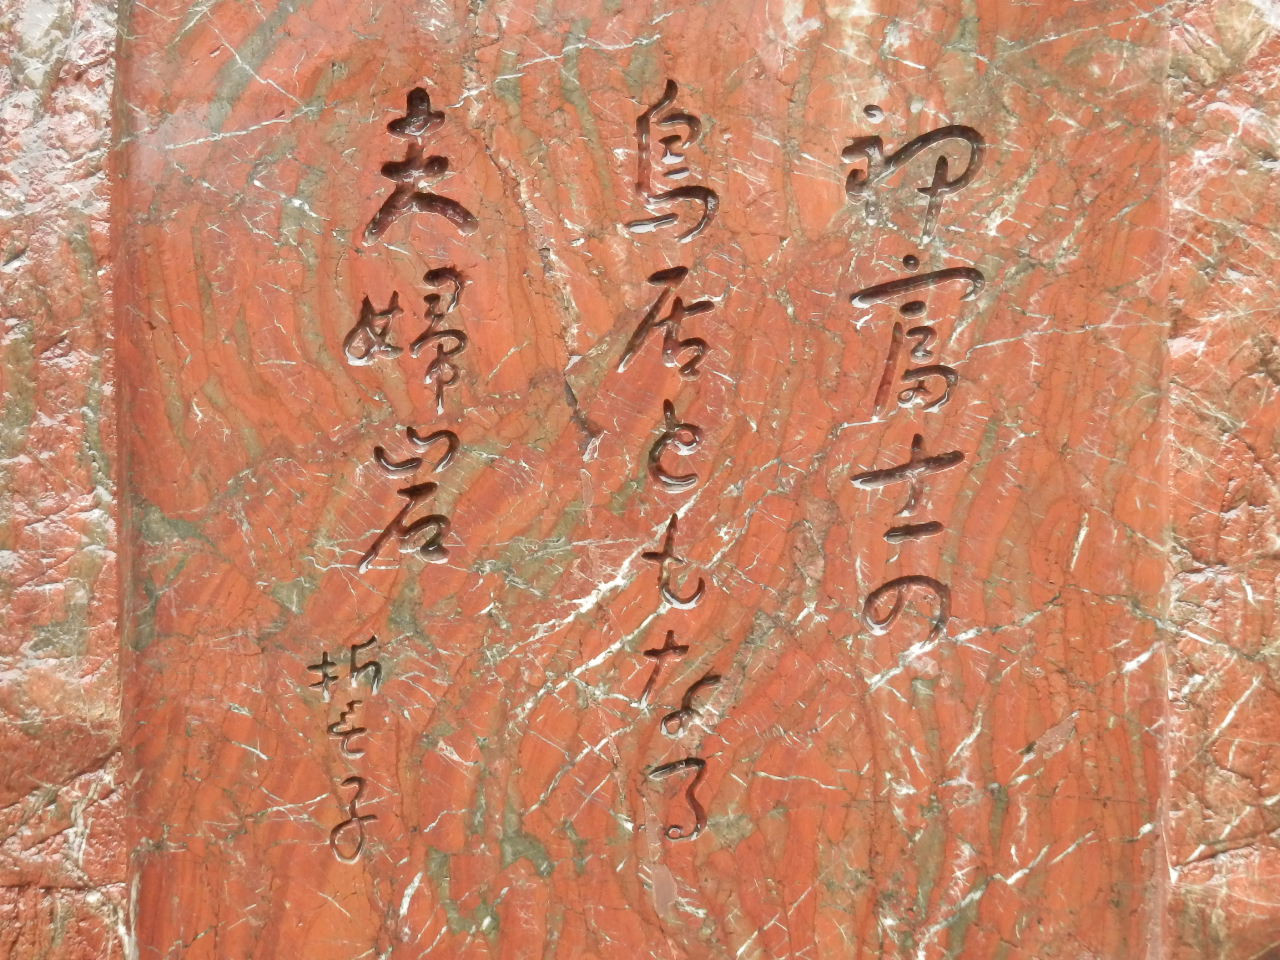 初富士の
鳥居ともなる
夫婦岩
誓子